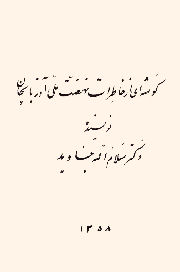 گوشه‌ای از خاطرات نهضت ملی آذربایجان
نویسنده
دکتر سلام الله جاوید
۱۳۵۸